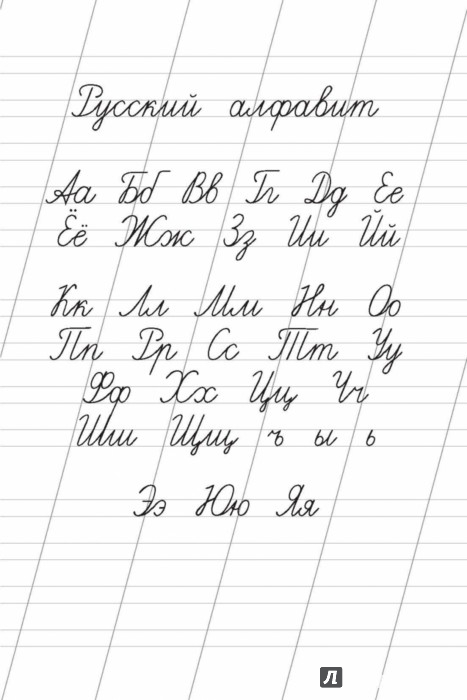 Русский алфавит
Аа Бб Вв Гг Дд Ее
Ёё Жж Зз Ии Йй
Кк Лл Мм Нн Оо
Пп Рр Сс Тт Уу
Фф Хх Цц Чч
Шш Щщ ъ ы ь
Ээ Юю Яя
Л